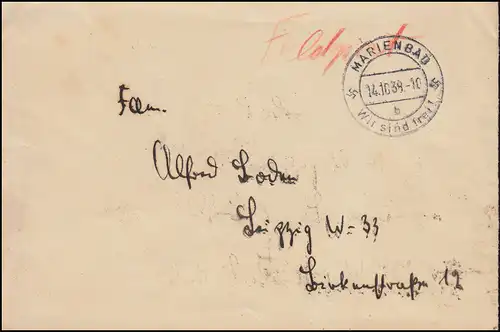 Feldpost
MARIENBAD
14.10.39.-10
b
Wir sind frei!
Fam.
Alfred Boden
Leipzig W-33
Birkenstraße 12